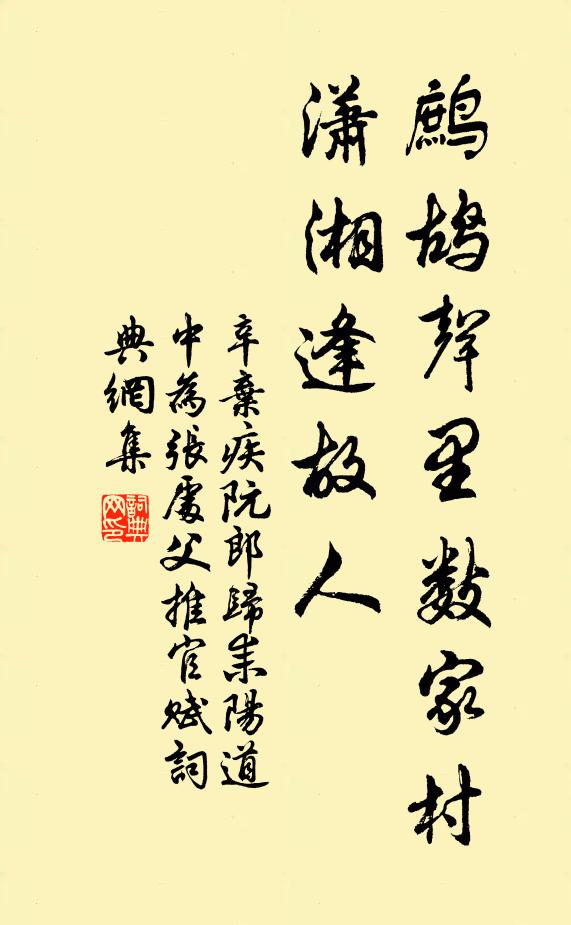 鷓鴣聲里數家村
瀟湘逢故人
辛棄疾阮郎歸耒陽道
中為張處父推官賦詞
典網集
詞典
网印